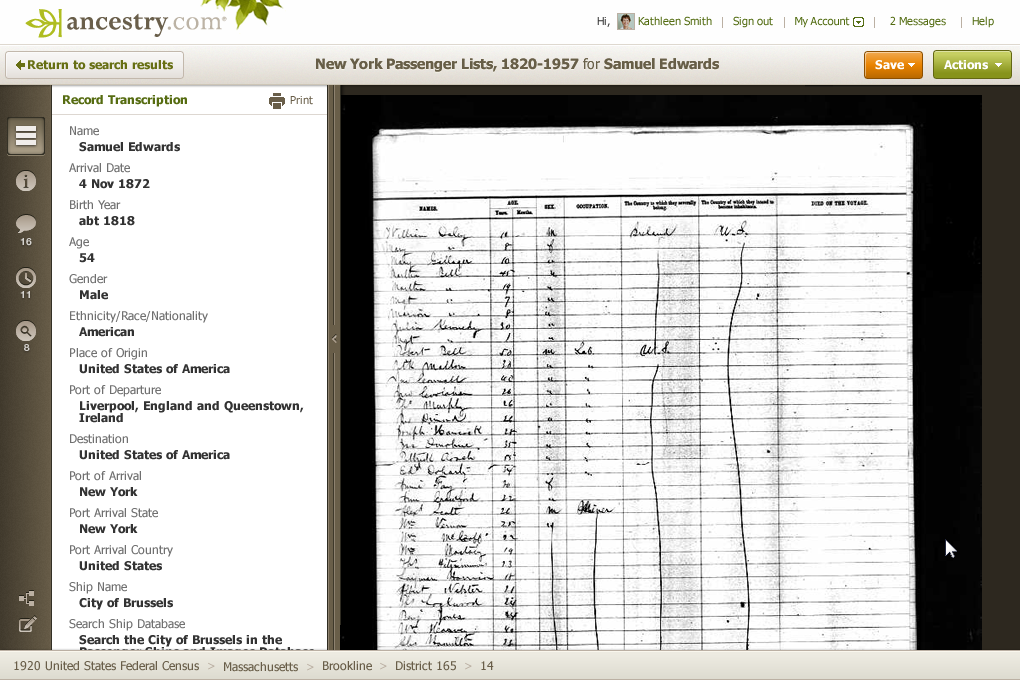 ancestry.com
Hi, Kathleen Smith | Sign out | My Account | 2 Messages | Help
Return to search results
New York Passenger Lists, 1820-1957 for Samuel Edwards
Save
Actions
Record Transcription
Print
Name
Samuel Edwards
Arrival Date
4 Nov 1872
Birth Year
abt 1818
Age
54
Gender
Male
Ethnicity/Race/Nationality
American
Place of Origin
United States of America
Port of Departure
Liverpool, England and Queenstown,
Ireland
Destination
United States of America
Port of Arrival
New York
Port Arrival State
New York
Port Arrival Country
United States
Ship Name
City of Brussels
Search Ship Database
Search the City of Brussels in the
Passenger Ships and Images Database
16
11
8
NAMES.
AGE.
Years.
Months.
SEX.
OCCUPATION.
The Country to which they severally
belong.
The Country of which they intend to
become inhabitants.
DIED ON THE VOYAGE.
William Daley
m
Ireland
U.S.
Mary " 8 f
Mary 10 "
Martha Bell
Martha " 19 "
Mgt " 7 "
Marion " 8 "
Julia Kennedy 30 "
Mgt " 1 "
Robert Bell 50 m Lab. U.S.
Murphy 26
Joseph Hancock
Patrick
Edwd Doherty
Annie Fay 30 f
Ann Crawford 22 "
Scott 26 m
Wm Vernon
Wm
Wm
Thos Fitzsimmons 23
Harrison
Albert Webster 21
Lockwood
Benj Jones
Wm
Hamilton
1920 United States Federal Census > Massachusetts > Brookline > District 165 > 14